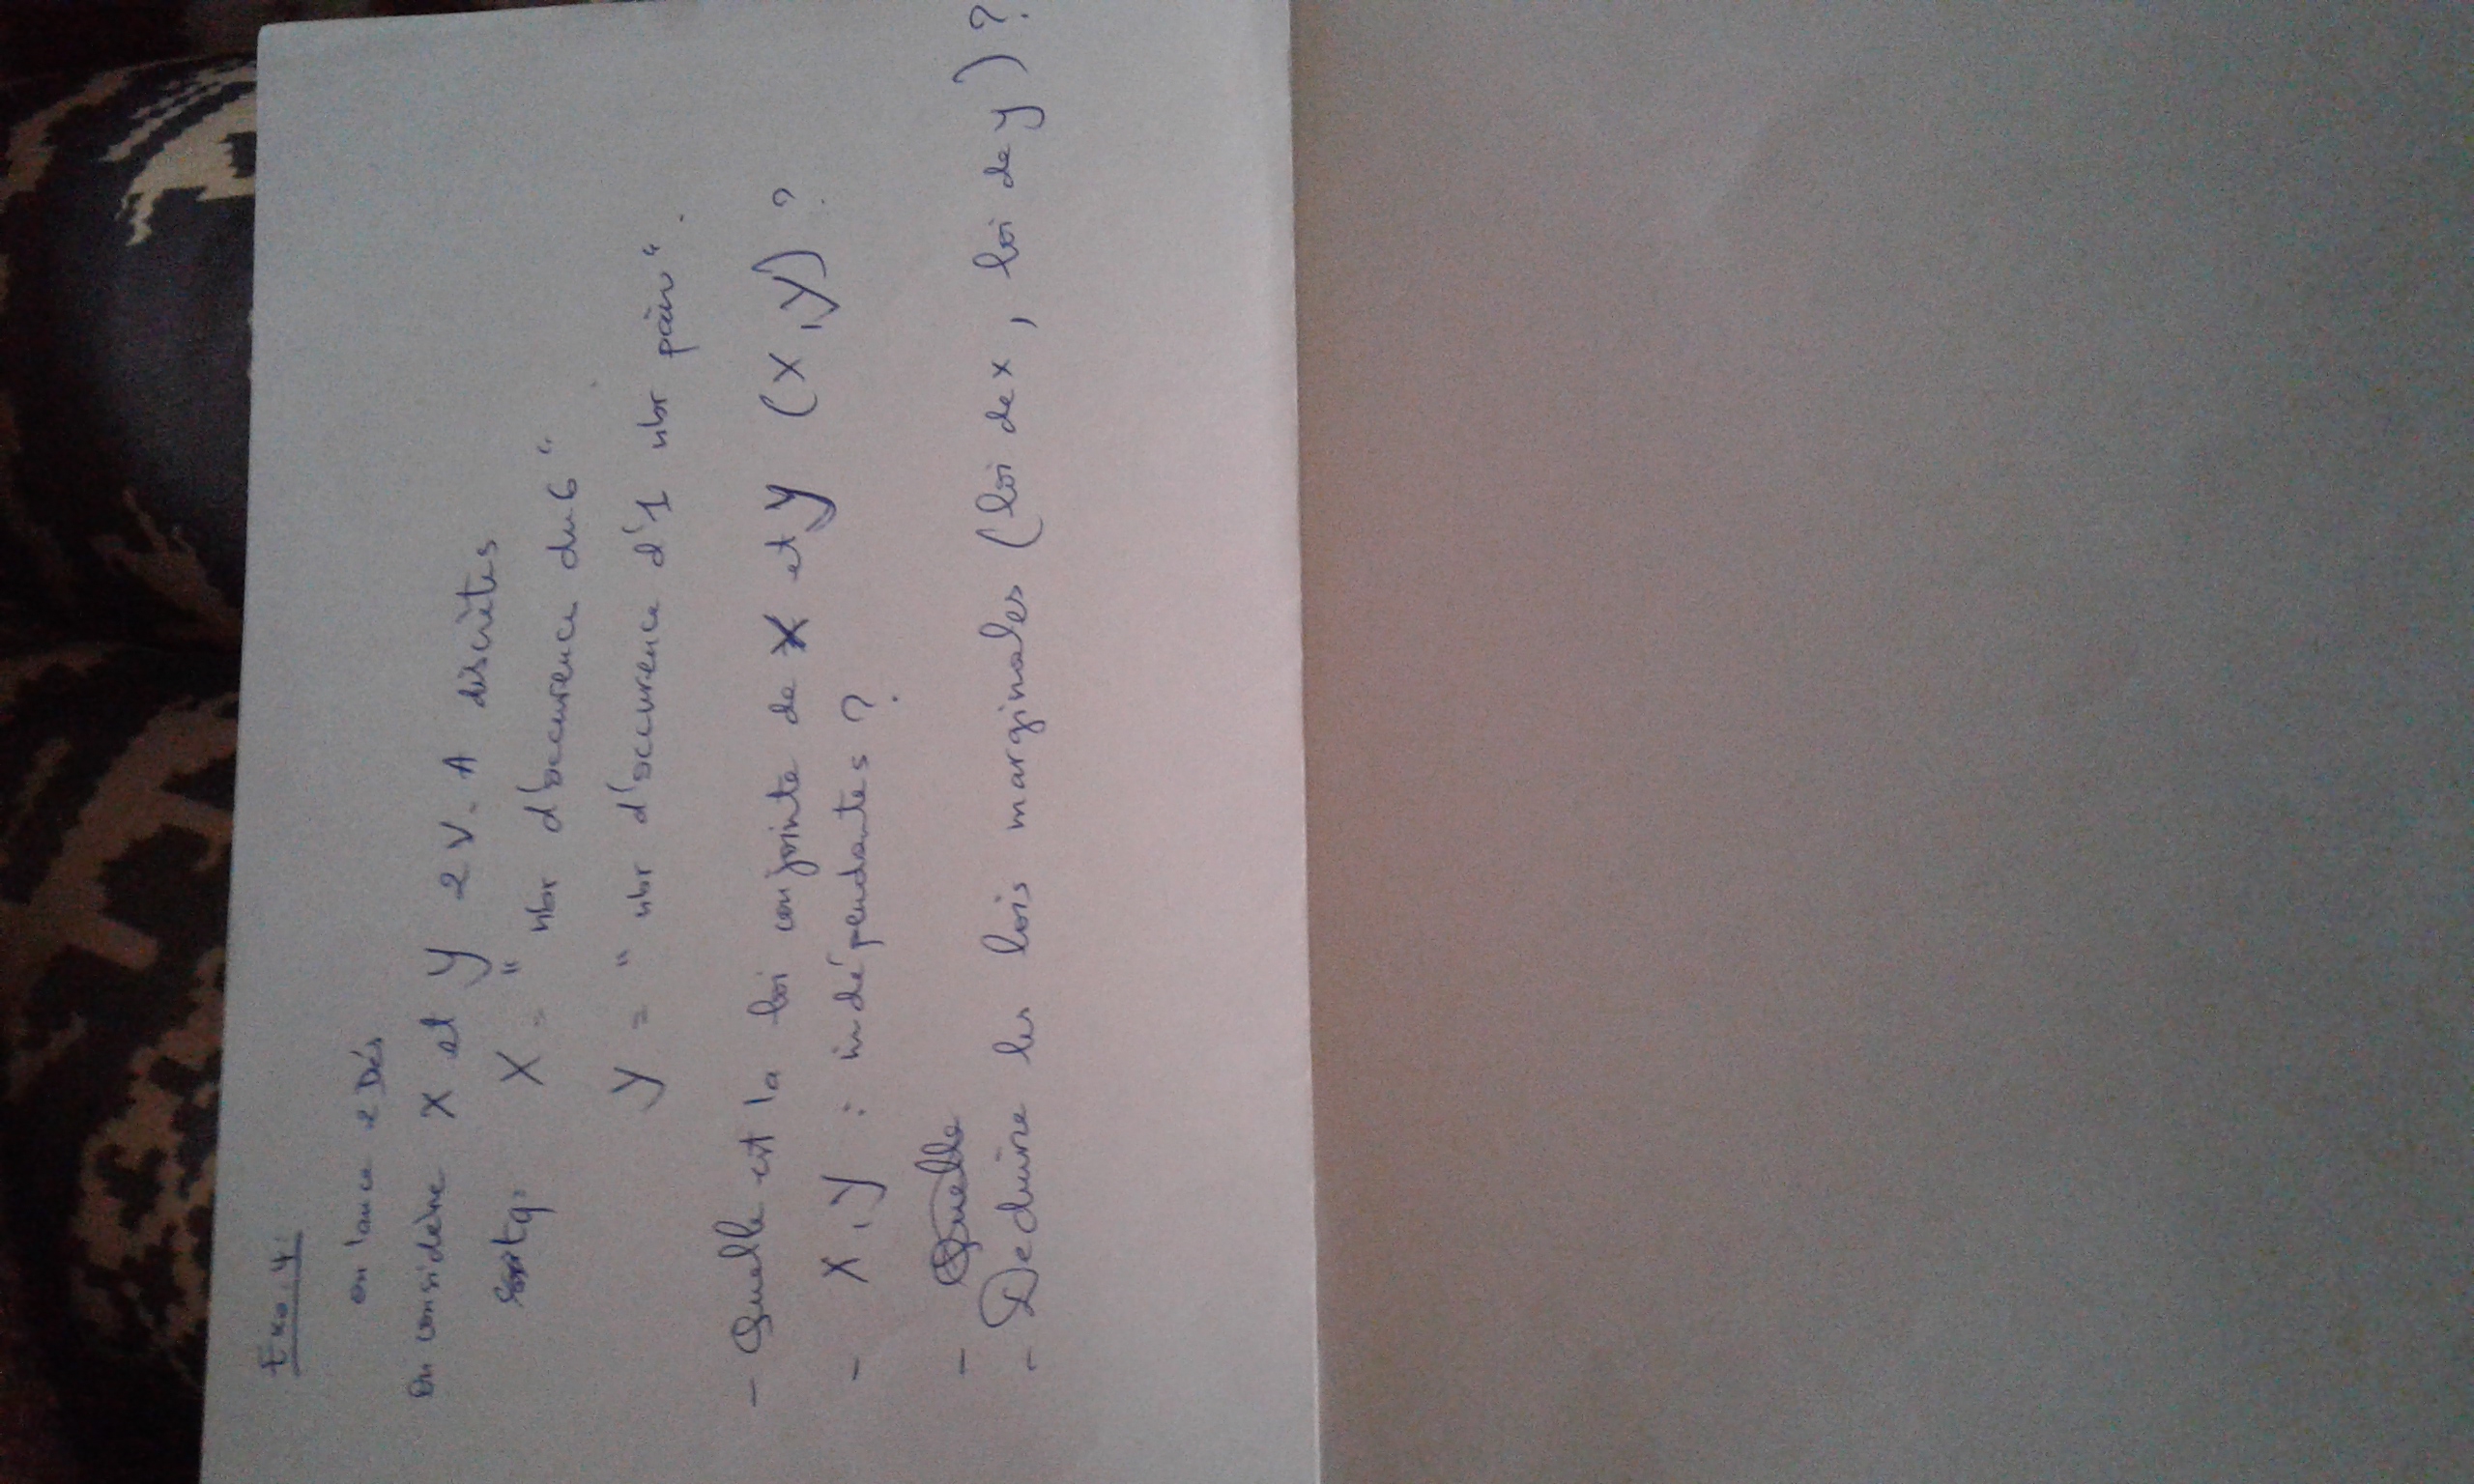 Exo 4:
on lance 2 Dés
On considère X et Y 2 V.A discrètes
tq: X = " nbr d'occurence du 6 "
Y = " nbr d'occurence d'1 nbr pair ".
- Quelle est la loi conjointe de X et Y (X, Y) ?
- X, Y : indépendantes ?
- Quelle
- Deduire les lois marginales (loi de x, loi de y) ?